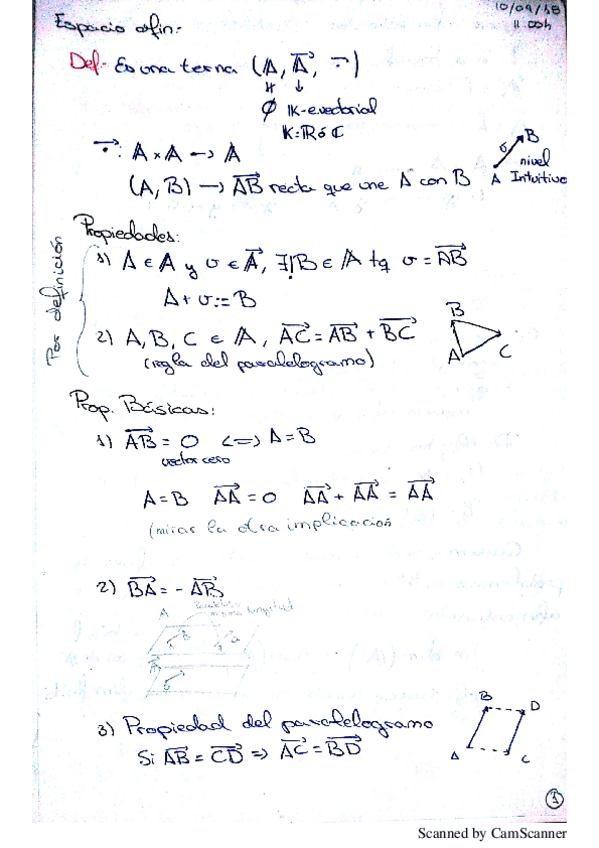 10/09/18
11:00h
Espacio afin:
Def- Es una terna (A, A⃗, →)
≠ ↓
∅ K-e.vectorial
K=R ó C
→: A × A → A
(A, B) → AB⃗ recta que une A con B
v B
A
nivel
Intuitivo
Propiedades:
Por definición
1) A ∈ A y v ∈ A⃗, ∃|B ∈ A tq v = AB⃗
A + v := B
2) A, B, C ∈ A, AC⃗ = AB⃗ + BC⃗
(regla del paralelogramo)
B
A C
Prop. Básicas:
1) AB⃗ = 0 <=> A = B
vector cero
A = B AA⃗ = 0 AA⃗ + AA⃗ = AA⃗
(mirar la otra implicación
2) BA⃗ = - AB⃗
longitud
A
3) Propiedad del paralelogramo
Si AB⃗ = CD⃗ => AC⃗ = BD⃗
B D
A C
1
Scanned by CamScanner